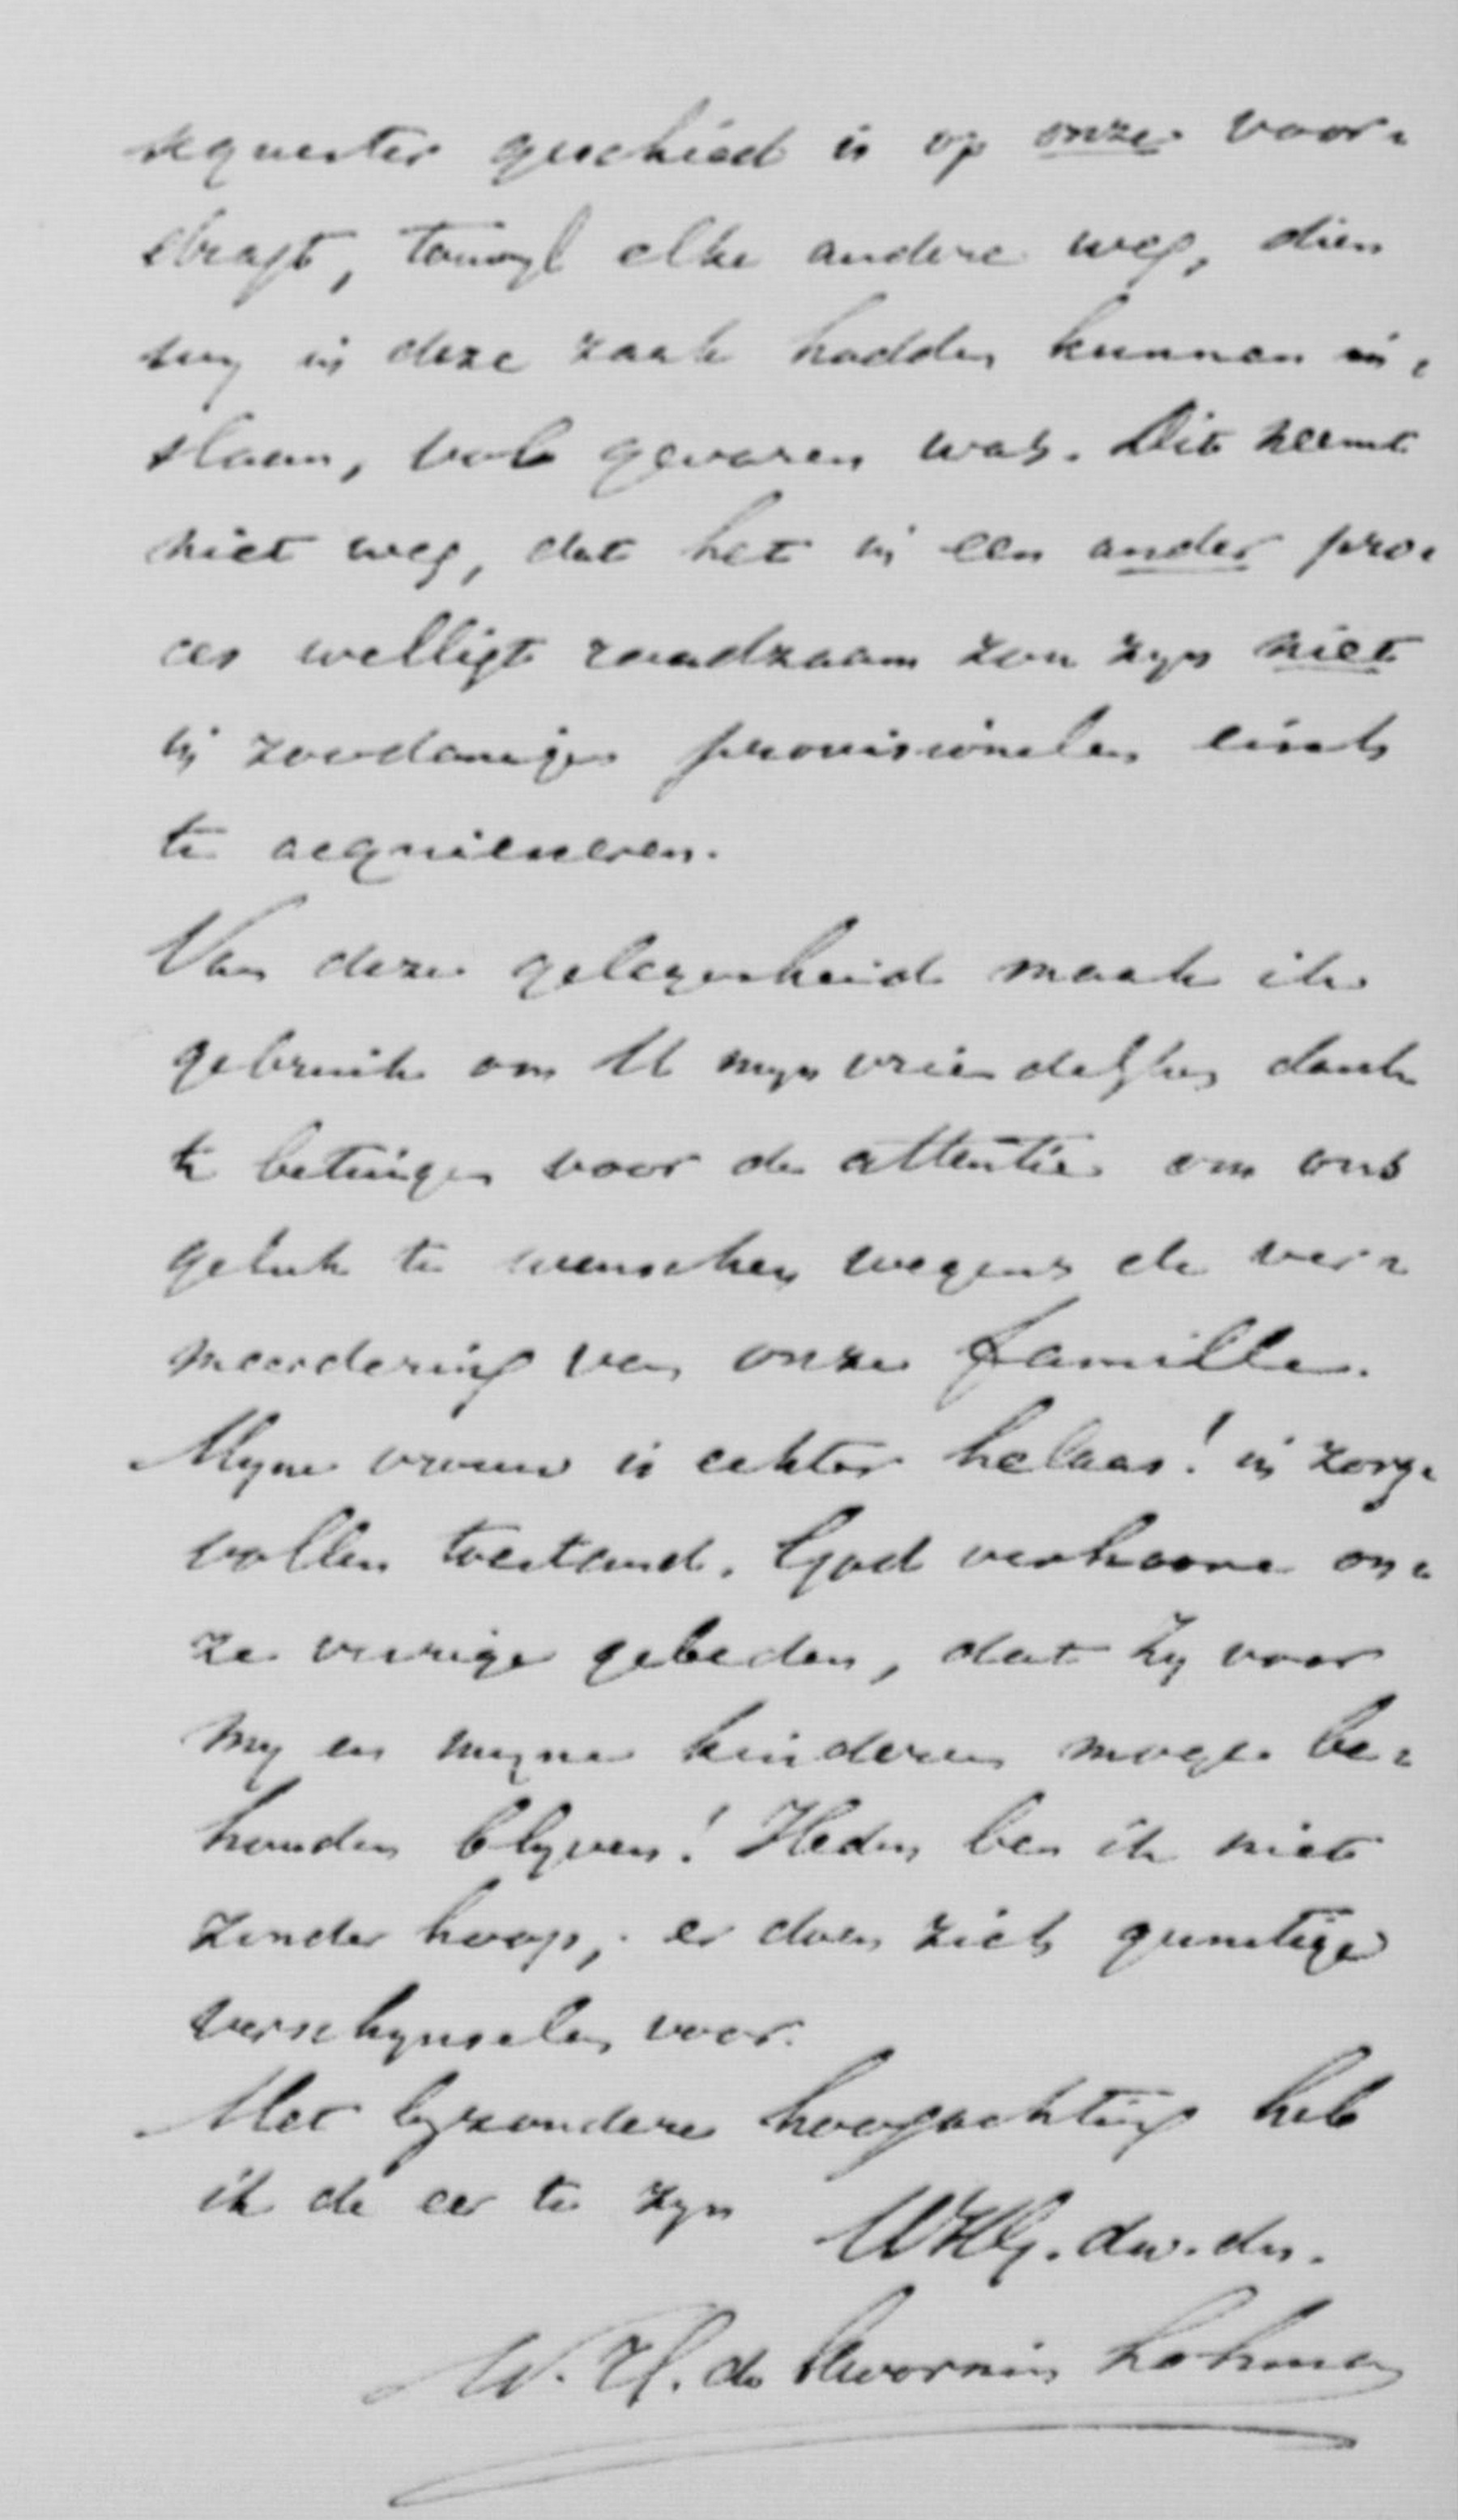 sequester geschied is op onze voor-
dragt, terwyl elke andere weg, dien
wy in deze zaak hadden kunnen in-
slaan, vol gevaren was. Dit neemt
niet weg, dat het in een ander pro-
ces welligt raadzaam zou zyn niet
in zoodanigen provisionelen eisch
te acquiesceren.
Van deze gelegenheid maak ik
gebruik om U myn vriendelyken dank
te betuigen voor de attentie om ons
geluk te wenschen wegens de ver-
meerdering van onze famille.
Myne vrouw is echter helaas! in zorg-
vollen toestand. God verhoore on-
ze vurige gebeden, dat zy voor
my en myne kinderen moge be-
houden blyven! Heden ben ik niet
zonder hoop; er doen zich gunstige
verschynselen voor.
Met byzondere hoogachting heb
ik de eer te zyn
UHEG. dw. dr.
W. H. de Savornin Lohman